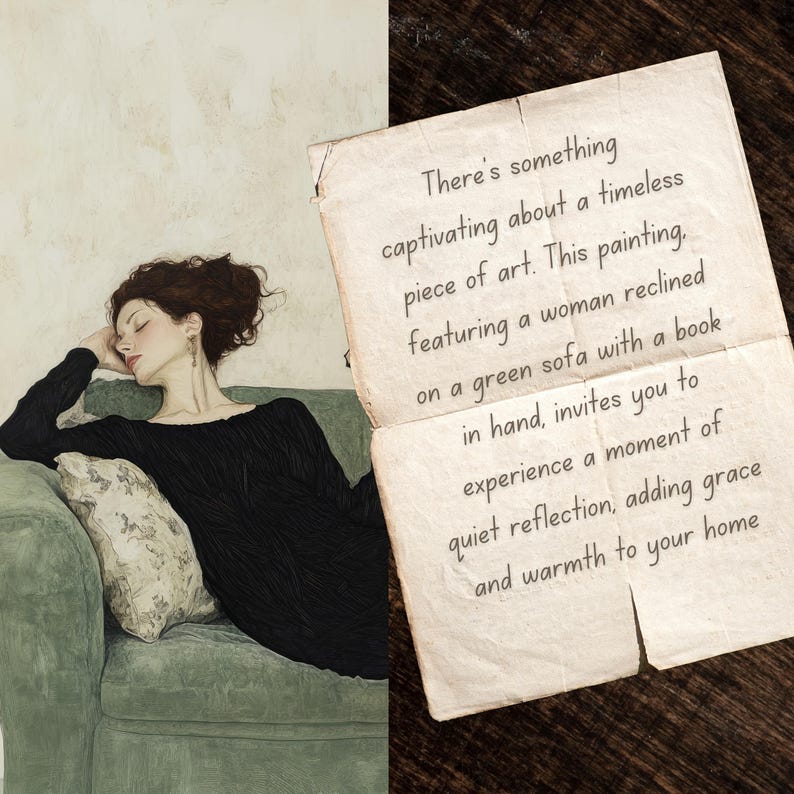 There's something
captivating about a timeless
piece of art. This painting,
featuring a woman reclined
on a green sofa with a book
in hand, invites you to
experience a moment of
quiet reflection, adding grace
and warmth to your home